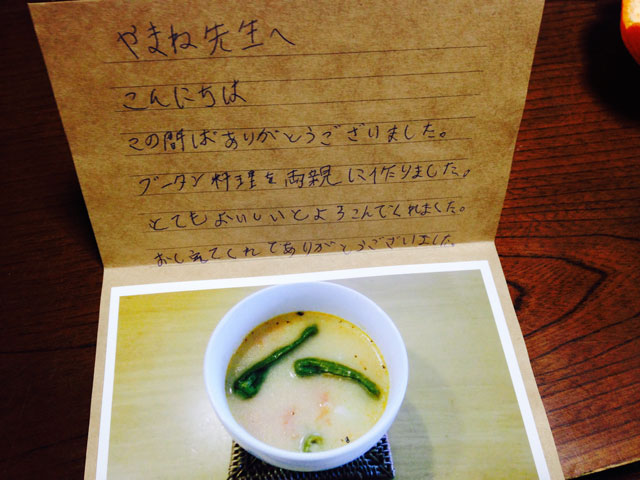 やまね先生へ
こんにちは
この間はありがとうございました。
ブータン料理を両親に作りました。
とてもおいしいとよろこんでくれました。
おし えてくれてありがとうございました